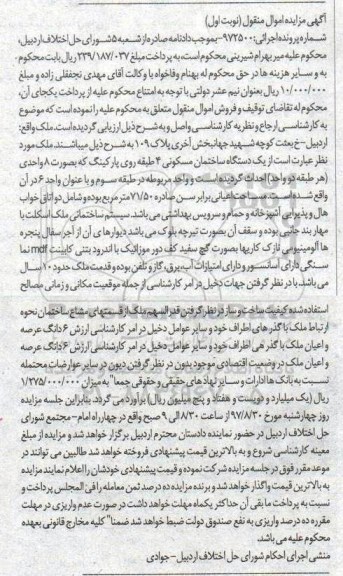 آگهی مزایده اموال منقول (نوبت اول)
شماره پرونده اجرائی: ۹۷۲۵۰۰-بموجب دادنامه صادره از شعبه ۵ شورای حل اختلاف اردبیل،
محکوم علیه میر بهرام شیرینی محکوم است، به پرداخت مبلغ ۲۳۹/۱۸۷/۰۳۷ ریال بابت محکوم
به و سایر هزینه ها در حق محکوم له بهنام وفاخواه با وکالت آقای مهدی نجفقلی زاده و مبلغ
۱۰/۰۰۰/۰۰۰ ریال بعنوان نیم عشر دولتی با توجه به امتناع محکوم علیه از پرداخت یکجای آن،
محکوم له تقاضای توقیف و فروش اموال منقول متعلق به محکوم علیه را نموده است که موضوع
به کارشناسی ارجاع و نظریه کارشناسی واصل و به شرح ذیل ارزیابی گردیده است. ملک واقع:
اردبیل-خ بعثت کوچه شهید جهانبخش آخری پلاک ۱۰۹ به شرح ذیل میباشند. ملک مورد
نظر عبارت است از یک دستگاه ساختمان مسکونی ۴ طبقه روی پارکینگ که بصورت ۸ واحدی
(هر طبقه دو واحد) احداث گردیده است و واحد مربوطه در طبقه سوم و با عنوان واحد ۶ در آن
واقع شده است. مساحت اعیانی برابر سن صادره ۷۱/۵۰ متر مربع بوده و شامل دو اتاق خواب
هال و پذیرایی آشپزخانه و حمام و سرویس بهداشتی می باشد. سیستم ساختمانی ملک اسکلت با
مهاربند جانبی بوده و سقف آن بصورت تیرچه بلوک می باشد دیوارهای آن از آجر سفال پنجره
ها آلومینیومی نازک کاریها بصورت گچ سفید کف دور موزائیک با اندرد بتنی کابینت mdf نما
سنگی دارای آسانسور و دارای امتیازات آب، برق، گاز و تلفن بوده و قدمت ملک حدود ۱۰ سال
می باشد. با در نظر گرفتن جهات دخیل در امر کارشناسی از جمله موقعیت مکانی و زمانی مصالح
استفاده شده کیفیت ساخت و ساز در نظر گرفتن قدرالسهم ملک از قسمتهای مشاع ساختمان نحوه
ارتباط ملک با گذرهای اطراف خود و سایر عوامل دخیل در امر کارشناسی ارزش ۶ دانگ عرصه
و اعیان ملک با گذر می اطراف خود و سایر عوامل دخیل در امر کارشناسی ارزش ۶ دانگ عرصه
و اعیان ملک در وضعیت اقتصادی موجود بدون در نظر گرفتن دیون در سایر عوارضات محتمله
نسبت به بانک ها ادارات و سایر نهادهای حقیقی و حقوقی جمعا" به میزان ۱/۲۷۵/۰۰۰/۰۰۰
ریال (یک میلیارد و دویست و هفتاد و پنج میلیون ریال) برآورد می گردد. بنابراین جلسه مزایده
روز چهارشنبه مورخ ۹۷/۸/۳۰ از ساعت ۸/۳۰ الی ۹ صبح واقع در چهارراه امام-مجتمع شورای
حل اختلاف اردبیل در حضور نماینده دادستان محترم اردبیل برگزار خواهد شد و مزایده از مبلغ
معینه کارشناسی شروع و به بالاترین قیمت پیشنهادی فروخته خواهد شد طالبین می توانند در
موعد مقرر فوق در جلسه مزایده شرکت نموده و قیمت پیشنهادی خودشان را اعلام نمایند مزایده
به بالاترین قیمت واگذار خواهد شد و برنده مزایده ده درصد ثمن معامله را فی المجلس پرداخت و
نسبت به پرداخت مابقی آن حداکثر یکماه مهلت خواهد داشت در صورت عدم واریزی در مهلت
مقرره ده درصد واریزی به نفع صندوق دولت ضبط خواهد شد ضمنا" کلیه مخارج قانونی بعهده
محکوم علیه می باشد.
منشی اجرای احکام شورای حل اختلاف اردبیل-جوادی